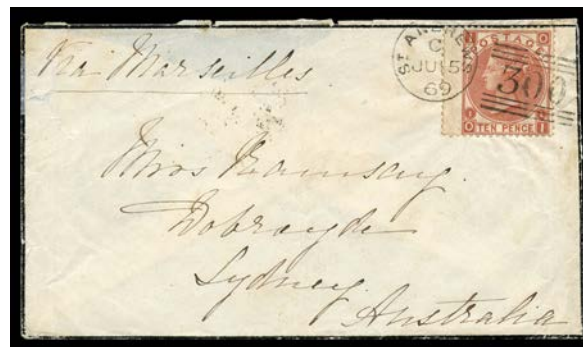 Via Marseilles
ST ANDREWS
C
JU 5
69
POSTAGE
300
TEN PENCE
Miss Ramsay.
Dobroyde
Sydney.
Australia